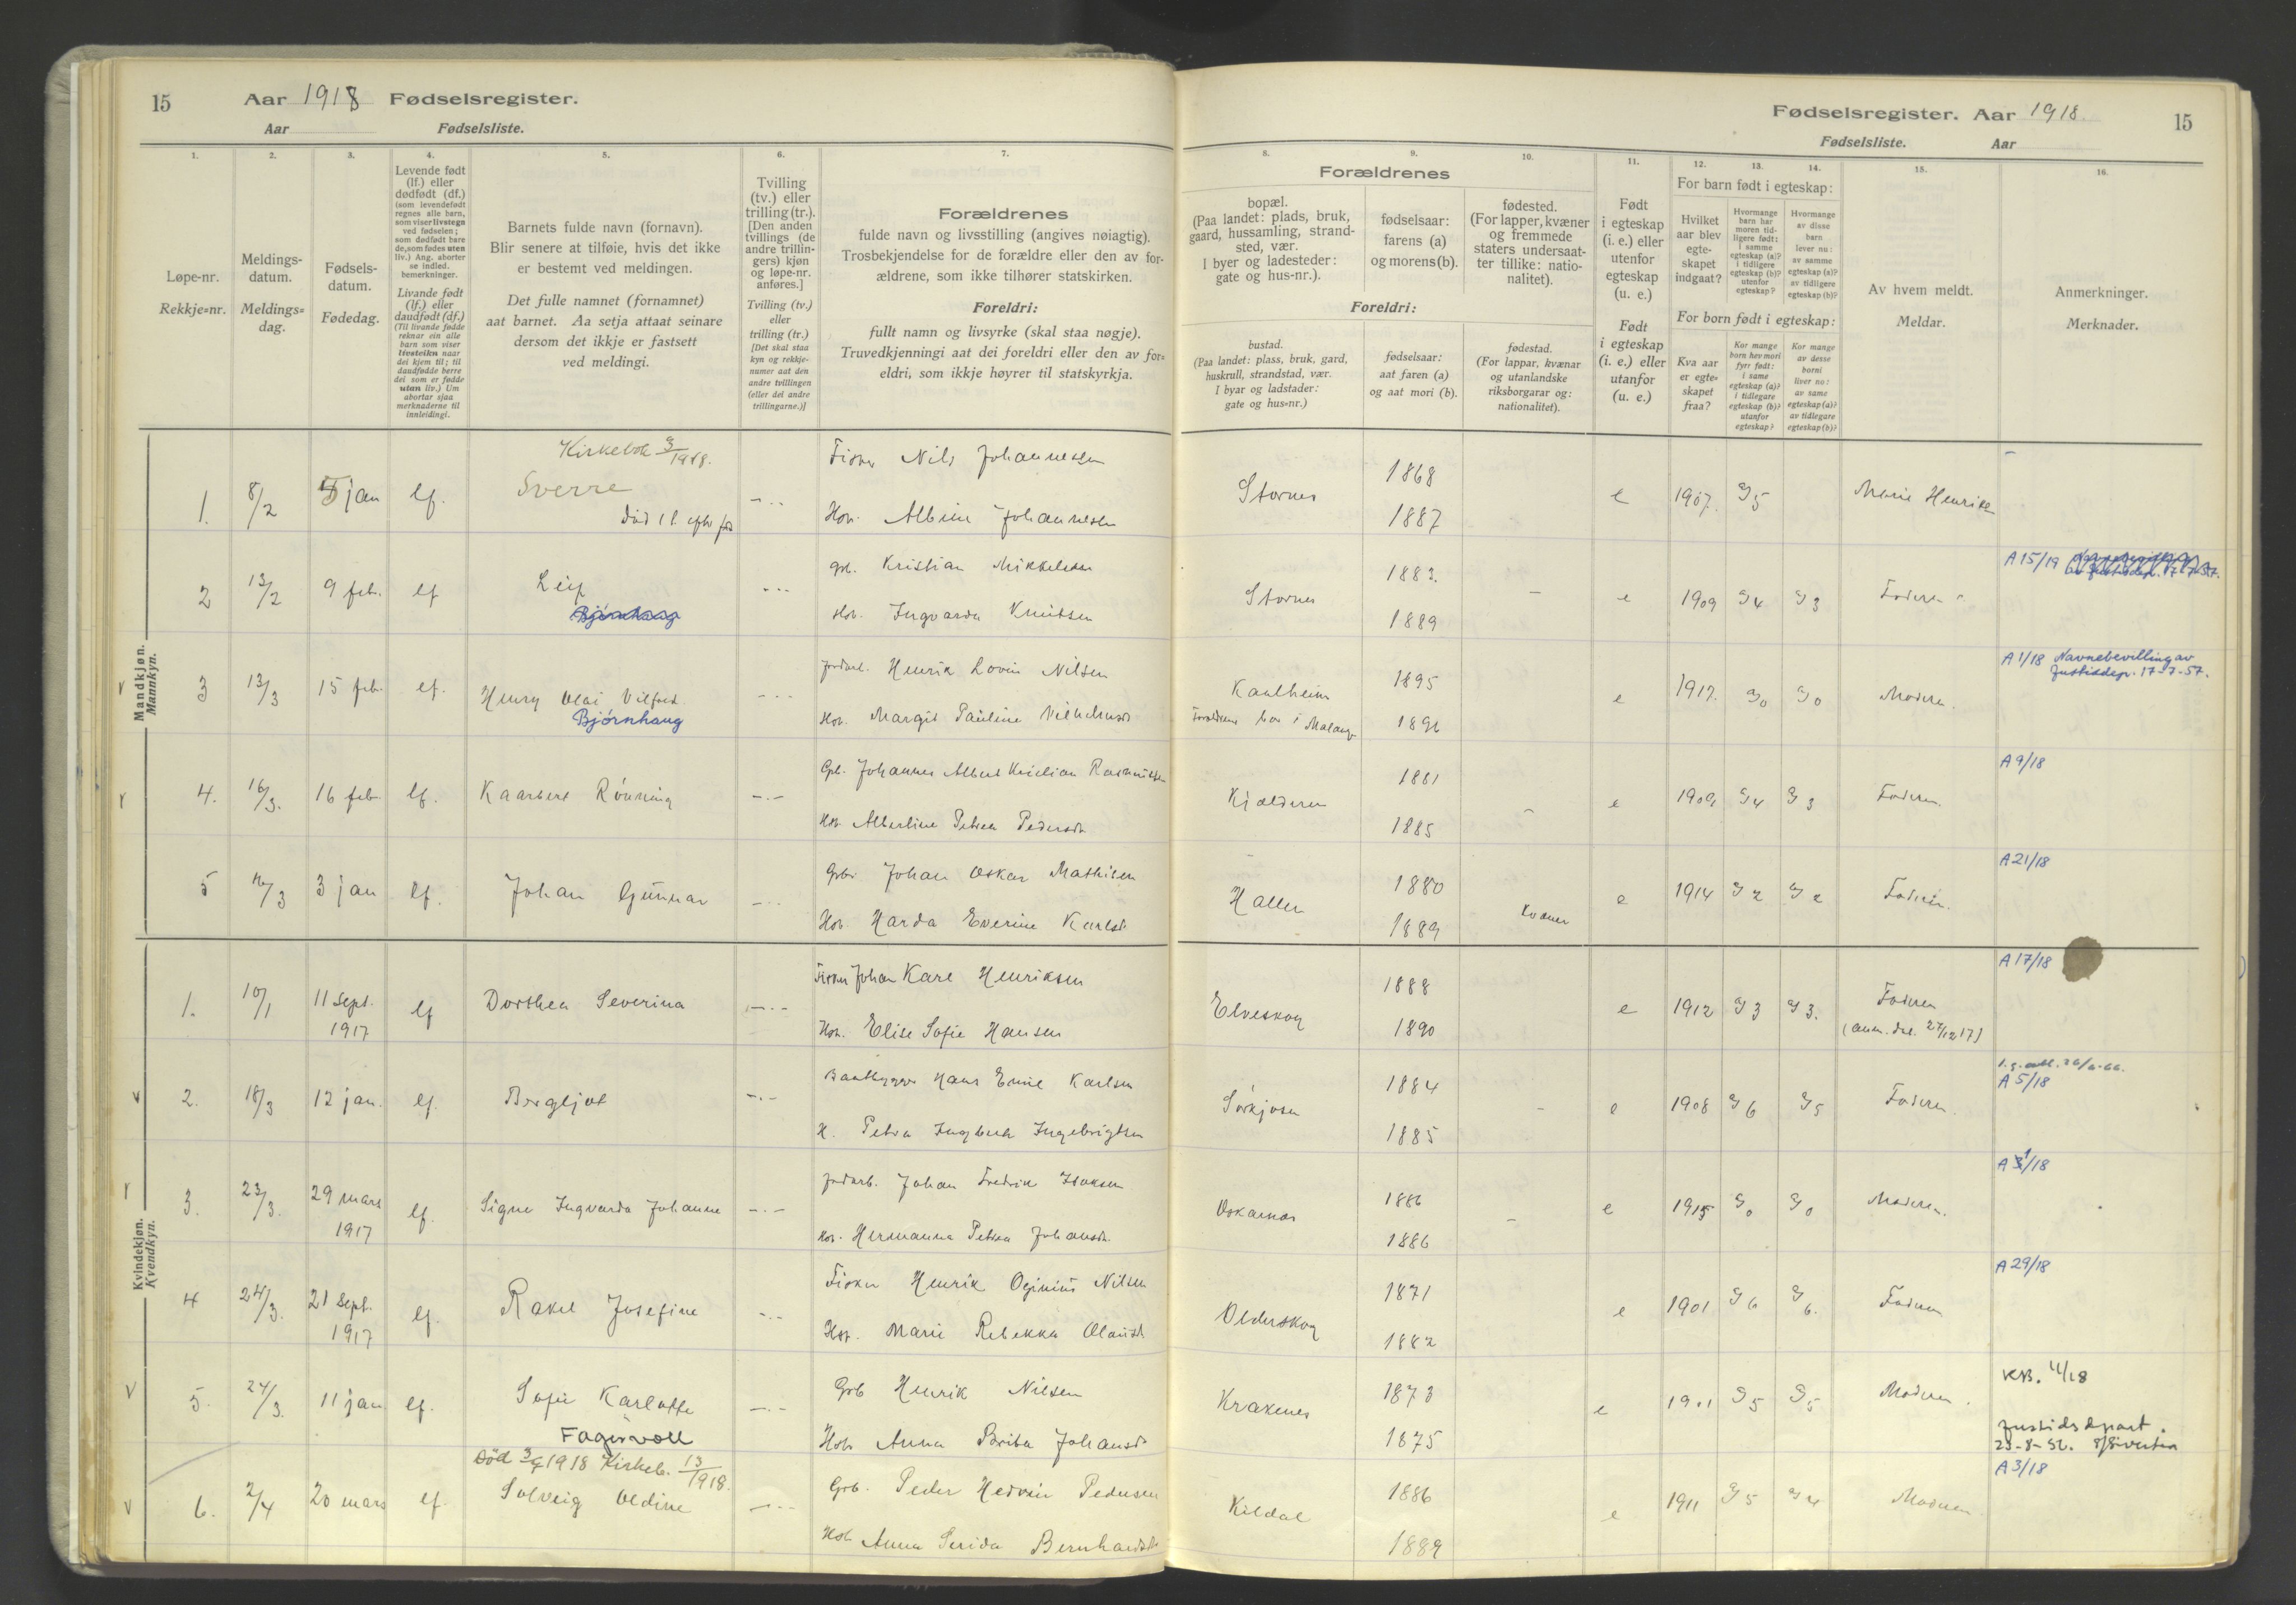 15 Aar 1918 Fødselsregister.
Aar Fødselsliste.
1.
Løpe-nr.
Rekkje=nr.
2.
Meldings-
datum.
Meldings=
dag.
3.
Fødsels-
datum.
Fødedag.
4.
Levende født
(lf.) eller
dødfødt (df.)
(som levendefødt
regnes alle barn,
som viser livstegn
ved fødselen;
som dødfødt bare
de, som fødes uten
liv.) Ang. aborter
se indled.
bemerkninger.
Livande født
(lf.) eller
daudfødt (df.)
(Til livande fødde
reknar ein alle
barn som viser
livsteikn naar
dei kjem til; til
daudfødde berre
dei som er fødde
utan liv.) Um
abortar sjaa
merknaderne til
innleidingi.
5.
Barnets fulde navn (fornavn).
Blir senere at tilføie, hvis det ikke
er bestemt ved meldingen.
Det fulle namnet (fornamnet)
aat barnet. Aa setja attaat seinare
dersom det ikkje er fastsett
ved meldingi.
6.
Tvilling
(tv.) eller
trilling (tr.).
[Den anden
tvillings (de
andre trillin-
gers) kjøn
og løpe-nr.
anføres.]
Tvilling (tv.)
eller
trilling (tr.)
[Det skal staa
kyn og rekkje-
numer aat den
andre tvillingen
(eller dei andre
trillingarne.)]
7.
Forældrenes
fulde navn og livsstilling (angives nøiagtig).
Trosbekjendelse for de forældre eller den av for-
ældrene, som ikke tilhører statskirken.
Foreldri:
fullt namn og livsyrke (skal staa nøgje).
Truvedkjenningi aat dei foreldri eller den av for=
eldri, som ikkje høyrer til statskyrkja.
Mandkjøn.
Mannkyn.
Kirkebok 3/1918.
1. 8/2 5 jan lf. Sverre -..- Fisker Nils Johannessen
Hov. Albine Johannessen
2 13/2 9 feb. lf Leif -..- Gbr. Kristian Mikkelsen
Bjørnhaug Hov. Ingvarda Knutsen
3 13/3 15 feb. lf. Henry Olai Vilfred -..- Jordarb. Henrik Lovin Nilsen
Bjørnhaug Hov. Margit Pauline Vilhelmsd.
4. 16/3. 16 feb lf. Kaarbert Rønning -..- Gbr. Johannes Albert Kristian Rasmussen
Hov Albertine Petrea Pedersdt.
5 16/3 3 jan lf. Johan Gunnar -..- Grbr Johan Oskar Mathisen
Hov. Harda Everine Karlsd.
Kvindekjøn.
Kvendkyn.
1. 10/1 11 sept. 1917 lf Dorthea Severina -..- Fisker Johan Karl Henriksen
Hov. Elise Sofie Hansen
2. 18/3 12 jan. lf. Bergljot -..- Baatbygger Hans Emil Karlsen
H. Petra Ingbrit Ingebrigtsen
3. 23/3. 29 mars 1917 lf. Signe Ingvarda Johanne -..- Jordarb. Johan Fredrik Isaksen
Hov. Hermanna Petrea Johansdt.
4 24/3. 21 sept. 1917 lf. Rakel Josefine -..- Fisker Henrik Oginius Nilsen
Hov. Marie Rebekka Olausd.
5. 24/3. 11 jan lf. Sofie Karlotte -..- Grb Henrik Nilsen
Fagervoll Hov Anna Berita Johansd.
Död 3/9 1918 Kirkeb. 13/1918.
6. 2/4 20 mars lf. Solveig Oldine -..- Grb. Peder Hedvin Pedersen
Hov Anna Serida Bernhardsd.
Fødselsregister. Aar 1918. 15
Fødselsliste. Aar
8.
9.
10.
Forældrenes
bopæl.
(Paa landet: plads, bruk,
gaard, hussamling, strand-
sted, vær.
I byer og ladesteder:
gate og hus-nr.).
fødselsaar:
farens (a)
og morens (b).
fødested.
(For lapper, kvæner
og fremmede
staters undersaat-
ter tillike: natio-
nalitet).
Foreldri:
bustad.
(Paa landet: plass, bruk, gard,
huskrull, strandstad, vær.
I byar og ladstader:
gate og hus=nr.)
fødselsaar:
aat faren (a)
og aat mori (b).
fødestad.
(For lappar, kvænar
og utanlandske
riksborgarar og:
nationalitet).
11.
Født
i egteskap
(i. e.) eller
utenfor
egteskap
(u. e.)
Født
i egteskap
(i. e.) eller
utanfor
(u. e.)
12.
13.
14.
For barn født i egteskap:
Hvilket
aar blev
egte-
skapet
indgaat?
Hvormange
barn har
moren tid-
ligere født:
i samme
egteskap (a)?
i tidligere
egteskap (b)?
utenfor
egteskap?
Hvormange
av disse
barn
lever nu:
av samme
egteskap (a)?
av tidligere
egteskap (b)?
For born født i egteskap:
Kva aar
er egte=
skapet
fraa?
Kor mange
born hev mori
fyrr født:
i same
egteskap (a)?
i tidlegare
egteskap (b)?
utanfor
egteskap?
Kor mange
av desse
borni
liver no:
av same
egteskap (a)?
av tidlegare
egteskap (b)?
15.
Av hvem meldt.
Meldar.
16.
Anmerkninger.
Merknader.
Stornes 1868 1887 e 1907. 5 Marie Henriks
Stornes 1883. 1889 - e 1909 4 3 Faderen A 15/19
Kantheim 1895 1896 e 1917. 0 0 Moderen. A 1/18 Navnebevilling av
Foreldrene bor i Malangr Justisdep. 17-7-57.
Kjelderen 1881 1885 - e 1909 4 3 Faderen. A 9/18
Hallen 1880 1889 Kvæner e 1914 2 2 Faderen. A 21/18
Elveskog 1888 1890 e 1912 3 3. Faderen A 17/18
(anm. dat. 27/12 17)
Sørkjosen 1884 1885 - e 1908 6 5 Faderen. A 5/18
Oskarnes 1886 1886 - e 1915 0 0 Moderen. A /18
Olderskog 1871 1882 e 1901 6 6. Faderen A 29/18
Krakenes 1873 1875 e 1901 5 5 Moderen. KB. 11/18
Justisdepart.
23-8-52.
Kildal 1886 1889 e 1911 5 4 Moderen A 3/18